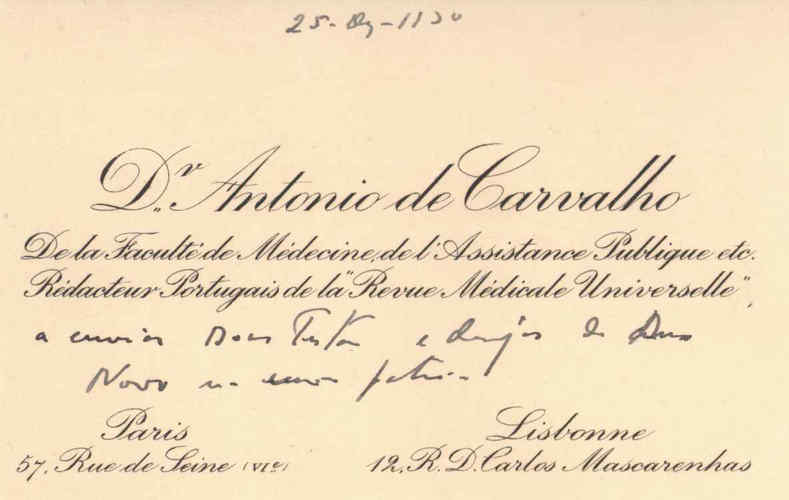 25-
Dr. Antonio de Carvalho
De la Faculté de Médecine, de l'Assistance Publique etc.
Rédacteur Portugais de la "Revue Médicale Universelle",
a enviar Boas Festas e desejos de
Novo
Paris
Lisbonne
57, Rue de Seine (VIe)
12, R. D. Carlos Mascarenhas